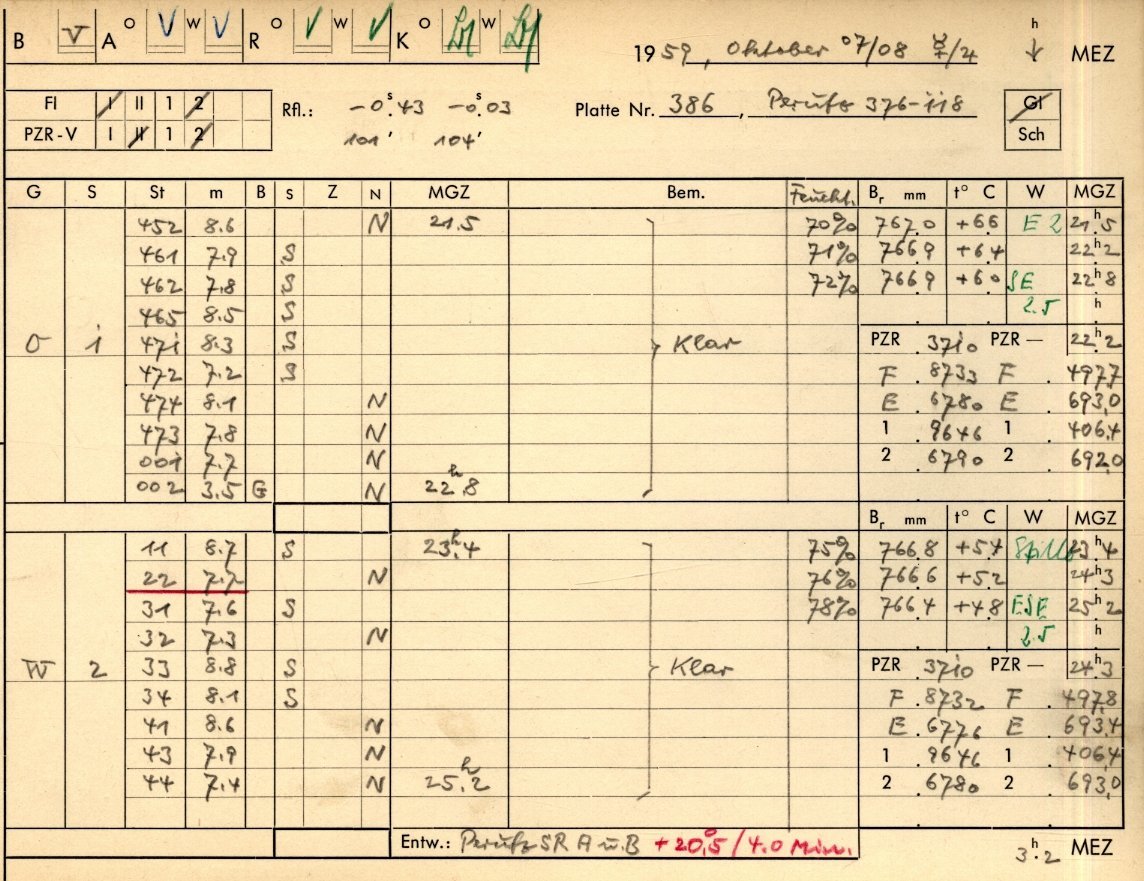 B V A O V W V R O V W V K O W 1959, Oktober 07/08 ☿/♃ h ↓ MEZ
FI I II 1 2 Rfl.: -0ˢ.43 -0ˢ.03 Platte Nr. 386, Perutz 376-118 Gl
PZR-V I II 1 2 101' 104' Sch
G S St m B S Z N MGZ Bem. Feucht. Bᵣ mm t° C W MGZ
452 8.6 N 21.5 70% 767.0 +6.6 E 2 21ʰ.5
461 7.9 S 71% 766.9 +6.4 22ʰ.2
462 7.8 S 72% 766.9 +6.0 SE 22ʰ.8
465 8.5 S 2.5 h
O 1 471 8.3 S Klar PZR 3710 PZR — 22ʰ.2
472 7.2 S F .8733 F . 497.7
474 8.1 N E .6780 E . 693.0
473 7.8 N 1 .9646 1 . 406.4
001 7.7 N 2 .6790 2 . 692.0
002 3.5 G N 22ʰ.8
Bᵣ mm t° C W MGZ
11 8.7 S 23ʰ.4 75% 766.8 +5.4 23ʰ.4
22 7.7 N 76% 766.6 +5.2 24ʰ.3
31 7.6 S 78% 766.4 +4.8 ESE 25ʰ.2
32 7.3 N 2.5 h
W 2 33 8.8 S Klar PZR .3710 PZR — 24ʰ.3
34 8.1 S F .8732 F . 497.8
41 8.6 N E .6776 E . 693.4
43 7.9 N 1 .9646 1 . 406.4
44 7.4 N 25ʰ.2 2 .6780 2 . 693.0
Entw.: Perutz SR A u. B +20°.5 / 4.0 Min. 3ʰ.2 MEZ